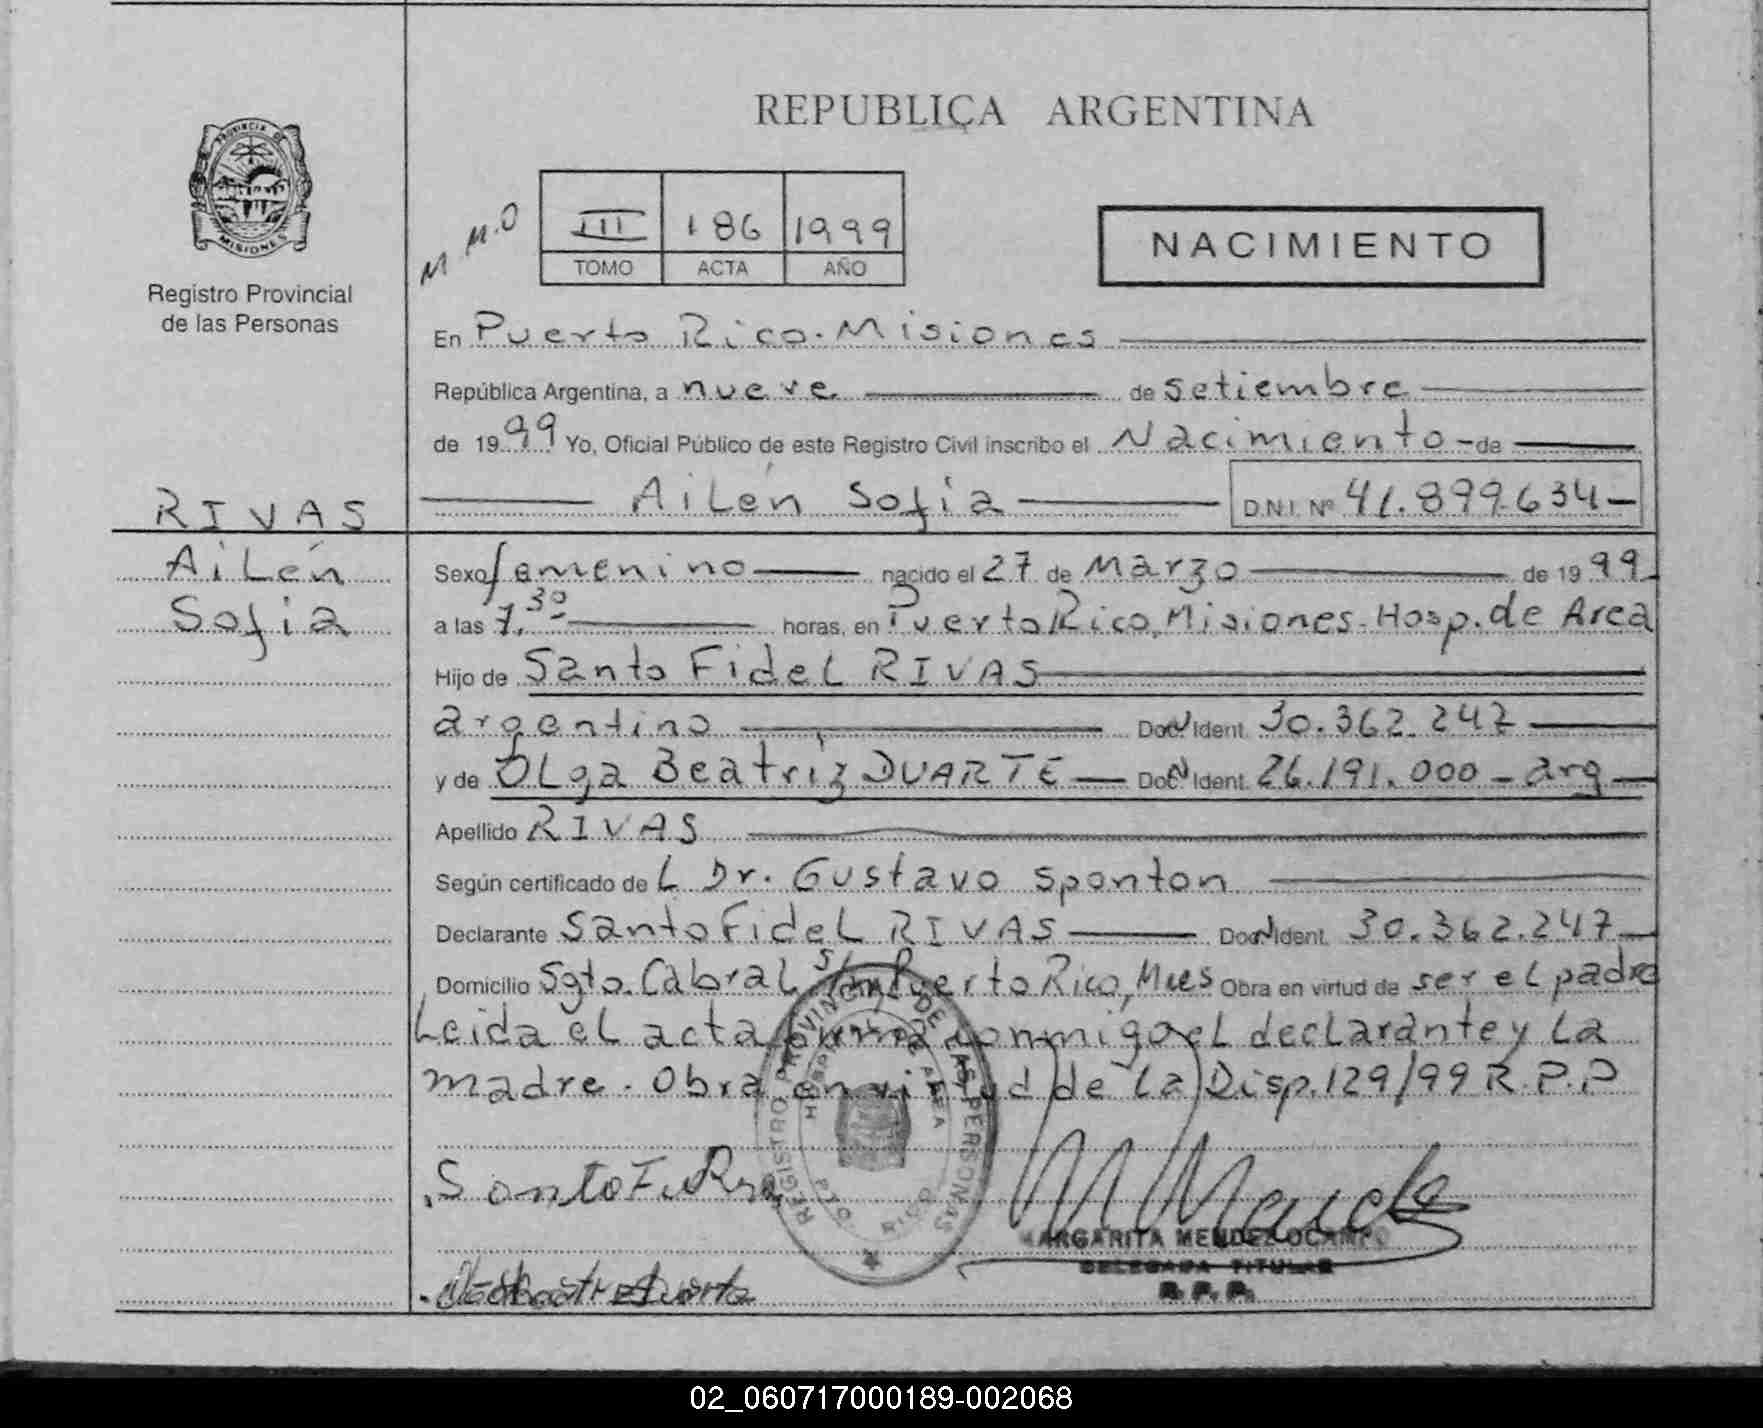 REPUBLICA ARGENTINA
PROVINCIA DE
MISIONES
Registro Provincial
de las Personas
M M.O
III 186 1999
TOMO ACTA AÑO
NACIMIENTO
En Puerto Rico. Misiones
República Argentina, a nueve de setiembre
de 1999 Yo, Oficial Público de este Registro Civil inscribo el Nacimiento - de
Ailén Sofía D.N.I. Nº 41.899.634-
RIVAS
Ailén
Sofia
Sexo femenino nacido el 27 de Marzo de 1999
a las 7,30 horas, en Puerto Rico, Misiones. Hosp. de Area
Hijo de Santo Fidel RIVAS
argentino Doc N Ident. 30.362.247
y de Olga Beatriz DUARTE Doc N Ident. 26.191.000 - arg
Apellido RIVAS
Según certificado de L Dr. Gustavo Sponton
Declarante Santo Fidel RIVAS Doc N Ident. 30.362.247
Domicilio Sgto. Cabral s/n Puerto Rico, Mnes Obra en virtud de ser el padre
Leida el acta firma conmigo el declarante y la
madre. Obra en virtud de la Disp. 129/99 R.P.P
REGISTRO PROVINCIAL DE LAS PERSONAS
HOSPITAL DE AREA
PTO. RICO
Santo F. Rivas
MARGARITA MENDEZ OCAMPO
DELEGADA TITULAR
R.P.P.
02_060717000189-002068